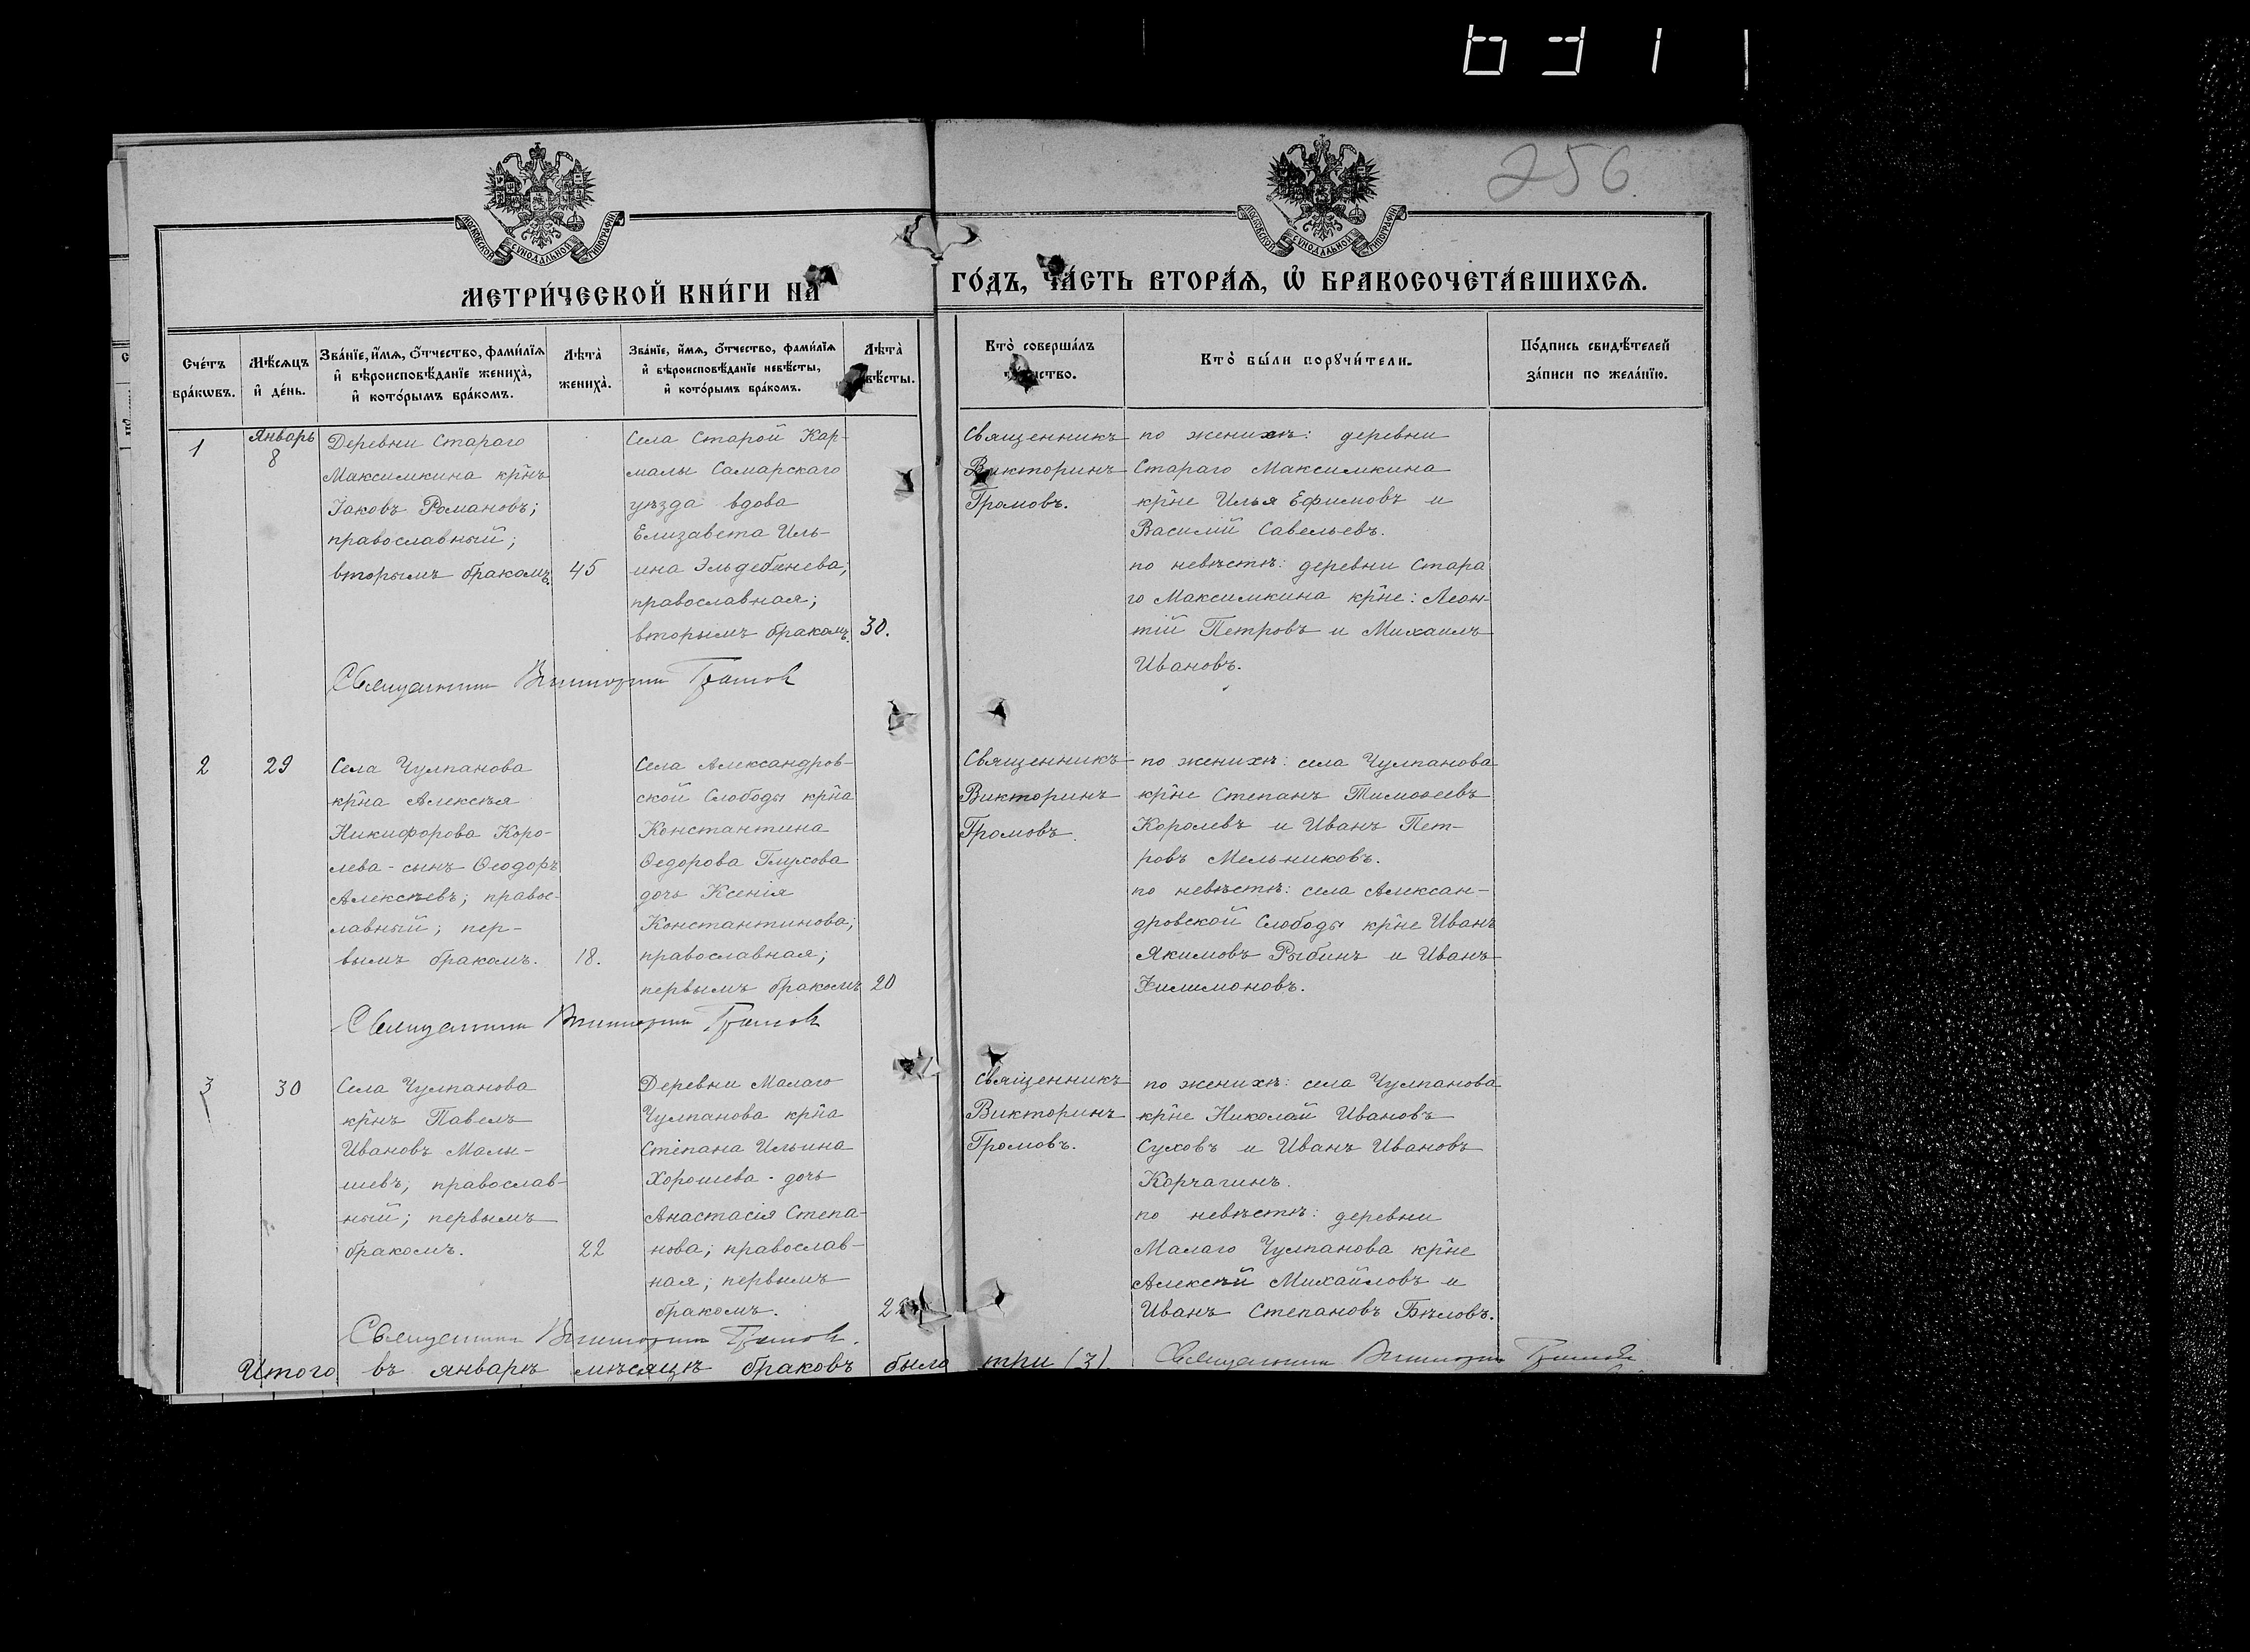 256
МОСКОВСКОЙ СУНОДАЛЬНОЙ ТИПОГРАФІИ
МОСКОВСКОЙ СУНОДАЛЬНОЙ ТИПОГРАФІИ
МЕТРИ́ЧЕСКОЙ КНИ́ГИ НА
ГО́ДЪ, ЧА́СТЬ ВТОРА́Ѧ, Ѡ҆ БРАКОСОЧЕТА́ВШИХСѦ.
Сче́тъ
бра́кѡвъ.
Мѣ́сѧцъ
и҆ де́нь.
Зва́нїе, и҆́мѧ, ѻ҆́тчество, фами́лїѧ
и҆ вѣроисповѣ́данїе жениха̀,
и҆ кото́рымъ бра́комъ.
Лѣта̀
жениха̀.
Зва́нїе, и҆́мѧ, ѻ҆́тчество, фами́лїѧ
и҆ вѣроисповѣ́данїе невѣ́сты,
и҆ кото́рымъ бра́комъ.
Лѣта̀
вѣ́сты.
Кто̀ соверша́лъ
ство.
Кто̀ бы́ли порꙋчи́тели.
По́дпись свидѣ́телей
за́писи по жела́нїю.
1
Январь
8
Деревни Стараго
Максимкина кр̃нъ
Іаковъ Романовъ;
православный;
вторымъ бракомъ.
45
Села Старой Кар-
малы Самарскаго
уѣзда вдова
Елизавета Иль-
ина Эльдебенева;
православная;
вторымъ бракомъ.
30.
Священникъ
Викторинъ
Громовъ.
по женихѣ: деревни
Стараго Максимкина
кр̃не Илья Ефимовъ и
Василій Савельевъ.
по невѣстѣ: деревни Стара
го Максимкина кр̃не: Леон-
тій Петровъ и Михаилъ
Ивановъ.
Священник Викторин Громов
2
29
Села Чулпанова
кр̃на Алексѣя
Никифорова Коро-
лева - сынъ Ѳеодоръ
Алексѣевъ; правос-
лавный; пер-
вымъ бракомъ.
18.
Села Александров-
ской Слободы кр̃на
Константина
Ѳедорова Глухова
дочь Ксенія
Константинова;
православная;
первымъ бракомъ
20
Священникъ
Викторинъ
Громовъ.
по женихѣ: села Чулпанова
кр̃не Степанъ Тимоѳеевъ
Королевъ и Иванъ Пет-
ровъ Мельниковъ.
по невѣстѣ: села Алексан-
дровской Слободы кр̃не Иванъ
Якимовъ Рыбинъ и Иванъ
Филимоновъ.
Священник Викторин Громов
3
30
Села Чулпанова
кр̃нъ Павелъ
Ивановъ Малы-
шевъ; православ-
ный; первымъ
бракомъ.
22
Деревни Малаго
Чулпанова кр̃на
Степана Ильина
Хорошева - дочь
Анастасія Степа-
нова; православ-
ная; первымъ
бракомъ.
Священникъ
Викторинъ
Громовъ.
по женихѣ: села Чулпанова
кр̃не Николай Ивановъ
Суховъ и Иванъ Ивановъ
Корчагинъ.
по невѣстѣ: деревни
Малаго Чулпанова кр̃не
Алексѣй Михайловъ и
Иванъ Степановъ Бѣловъ.
Священник Викторин Громов.
Итого въ январѣ мѣсяцѣ браковъ было три (3). Священник Викторин Громов